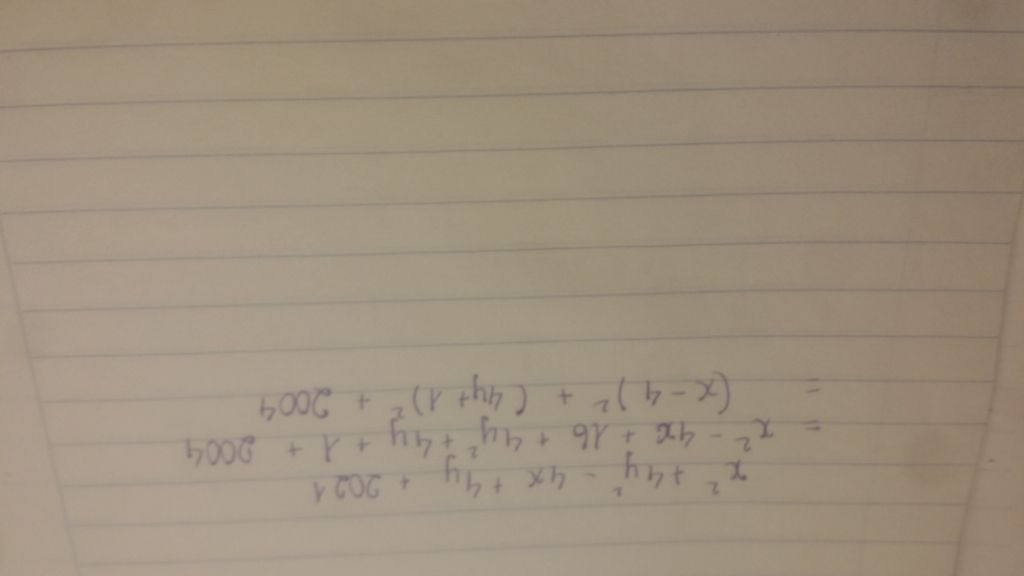 x² + 4y² - 4x + 4y + 2021
= x² - 4x + 16 + 4y² + 4y + 1 + 2004
= (x - 4)² + (4y + 1)² + 2004